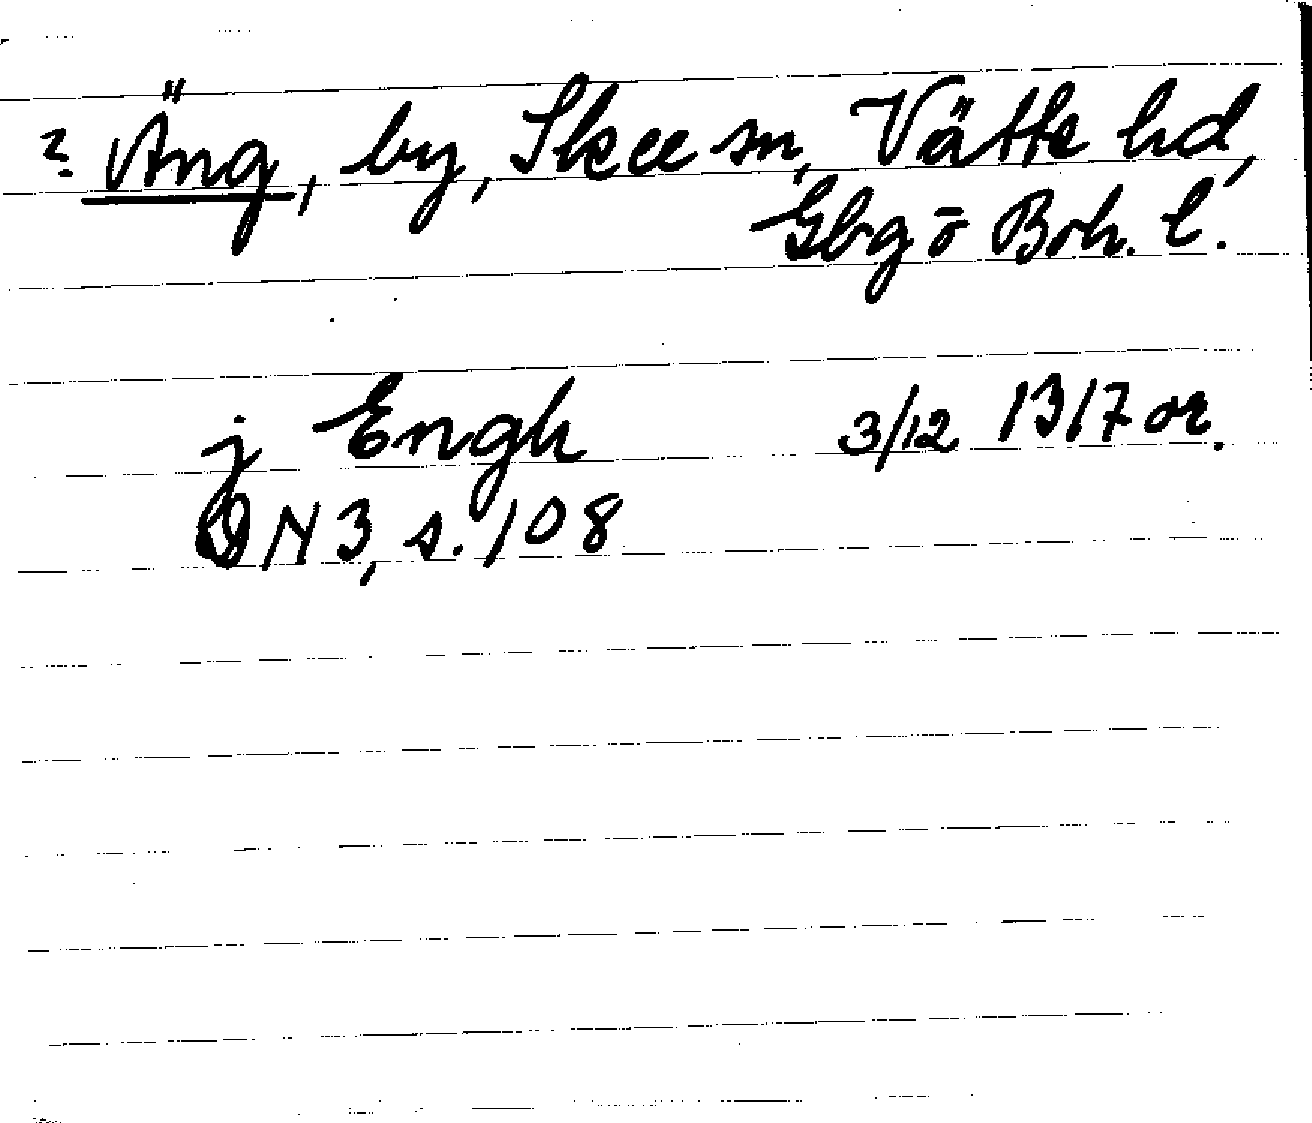 ? Äng, by, Skee sn, Vätte hd,
Gbg ō Boh. l.
j Engh 3/12 1317 or.
DN 3, s. 108